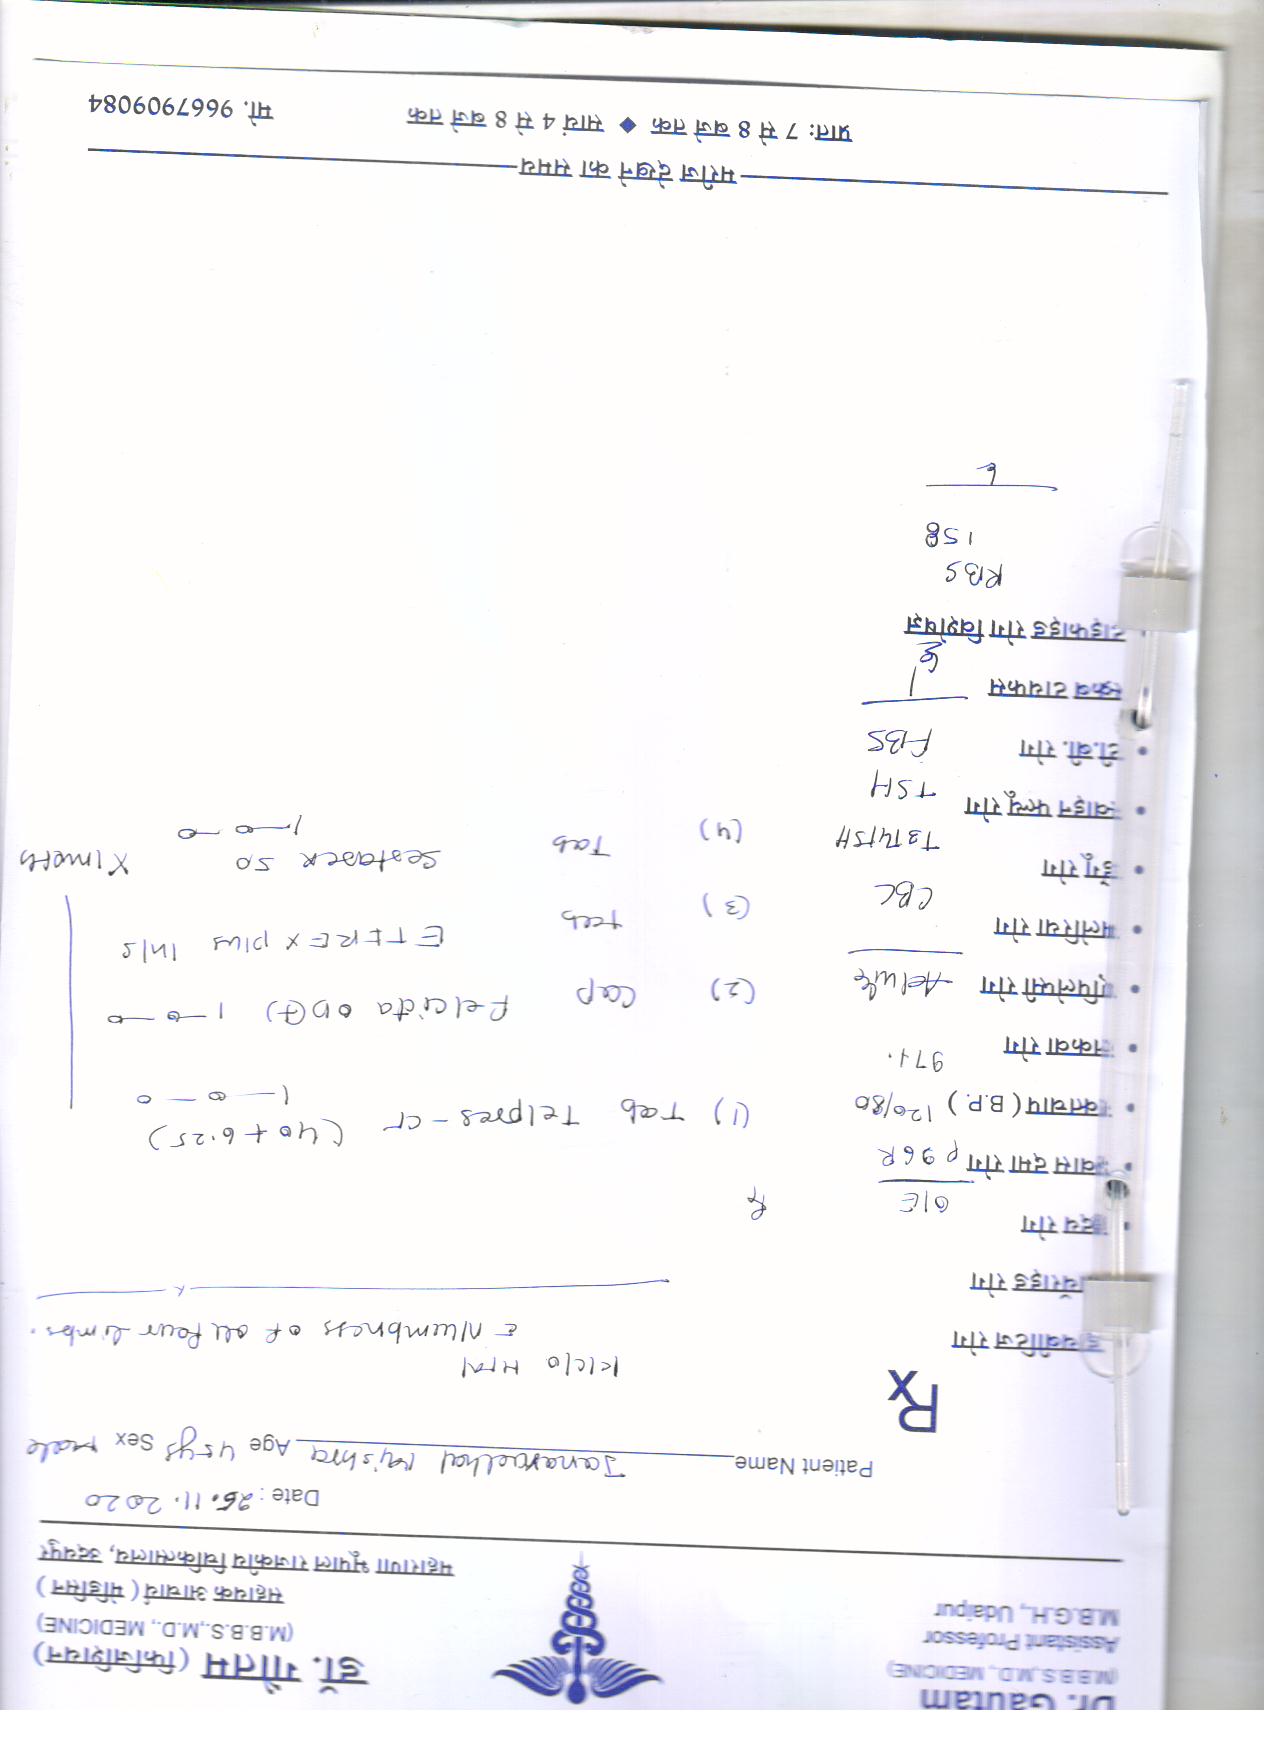 Dr. Gautam
(M.B.B.S.,M.D., MEDICINE)
Assistant Professor
M.B.G.H., Udaipur
डॉ. गौतम (फिजिशियन)
(M.B.B.S.,M.D., MEDICINE)
सहायक आचार्य ( मेडिसिन )
महाराणा भूपाल राजकीय चिकित्सालय, उदयपुर
Date : 26.11.2020
Patient Name Age 45 ys Sex male
Rx
K/C/O HTN
c Numbness of all four limbs.
डायबीटिज रोग
थॉयराइड रोग
हृदय रोग
O/E
श्वास दमा रोग P 96 R
रक्तचाप ( B.P. ) 120/80
97%
लकवा रोग
एपिलेप्सी रोग
मलेरिया रोग
डेंगू रोग
स्वाइन फ्ल्यू रोग
टी.बी. रोग
स्क्रब टायफस
टाइफाइड रोग विशेषज्ञ
Advice
CBC
T3T4TSH
TSH
FBS
RBS
158
Rx
(1) Tab Telpres-CT (40 + 6.25)
1—0—0
(2) Cap OD (7) 1—0—0
(3) Tab ETIREX plus 1n/s
(4) Tab 50
1—0—0
X 1 month
मरीज देखने का समय
प्रातः 7 से 8 बजे तक ◆ सायं 4 से 8 बजे तक मो. 9667909084